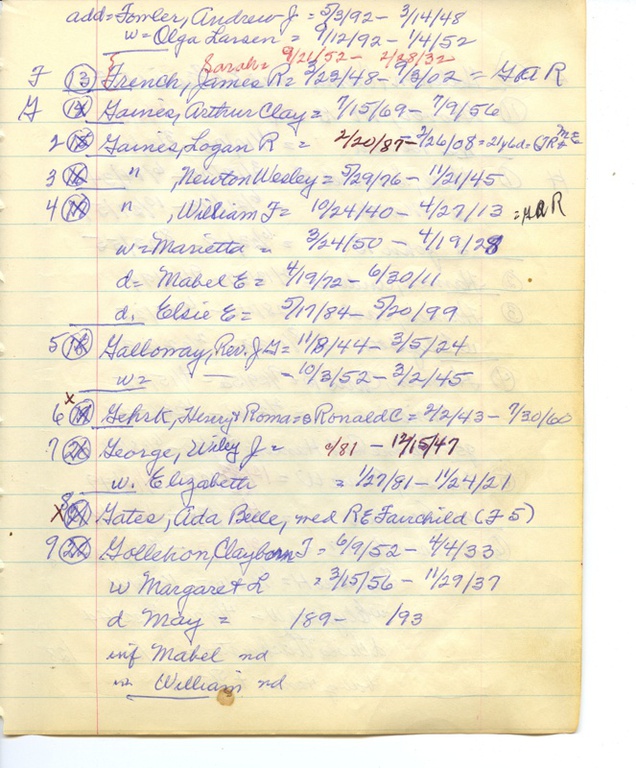 add = Fowler, Andrew J = 5/3/92 - 3/14/48
w = Olga Larsen = 9/12/92 - 1/4/52
Sarah = 9/21/52 - 2/28/32
F 13 French, James R = 3/23/48 - 7/3/02 = GAR
G Gaines, Arthur Clay = 7/15/69 - 7/9/56
2 Gaines, Logan R = 2/20/87 - 2/26/08 = 21y6d =
3 " , Newton Wesley = 5/29/76 - 11/21/45
4 " , William F = 10/24/40 - 4/27/13 = GAR
w = Marietta = 3/24/50 - 4/19/28
d = Mabel E = 4/19/72 - 6/30/11
d. Elsie E = 5/17/84 - 5/20/99
5 Galloway, Rev. J G = 11/8/44 - 3/5/24
w = — - 10/3/52 - 3/2/45
x
6 Gehrk, Henry & Roma = s Ronald C = 2/2/43 - 7/30/60
7 George, Wiley J = /81 - 12/15/47
w. Elizabeth = 1/27/81 - 11/24/21
x 8 Gates, Ada Belle, med R E Fairchild (F 5)
9 Golleher, Clayborn T = 6/9/52 - 4/4/33
w Margaret L = 3/15/56 - 11/29/37
d May = /89 - /93
inf Mabel nd
" William nd